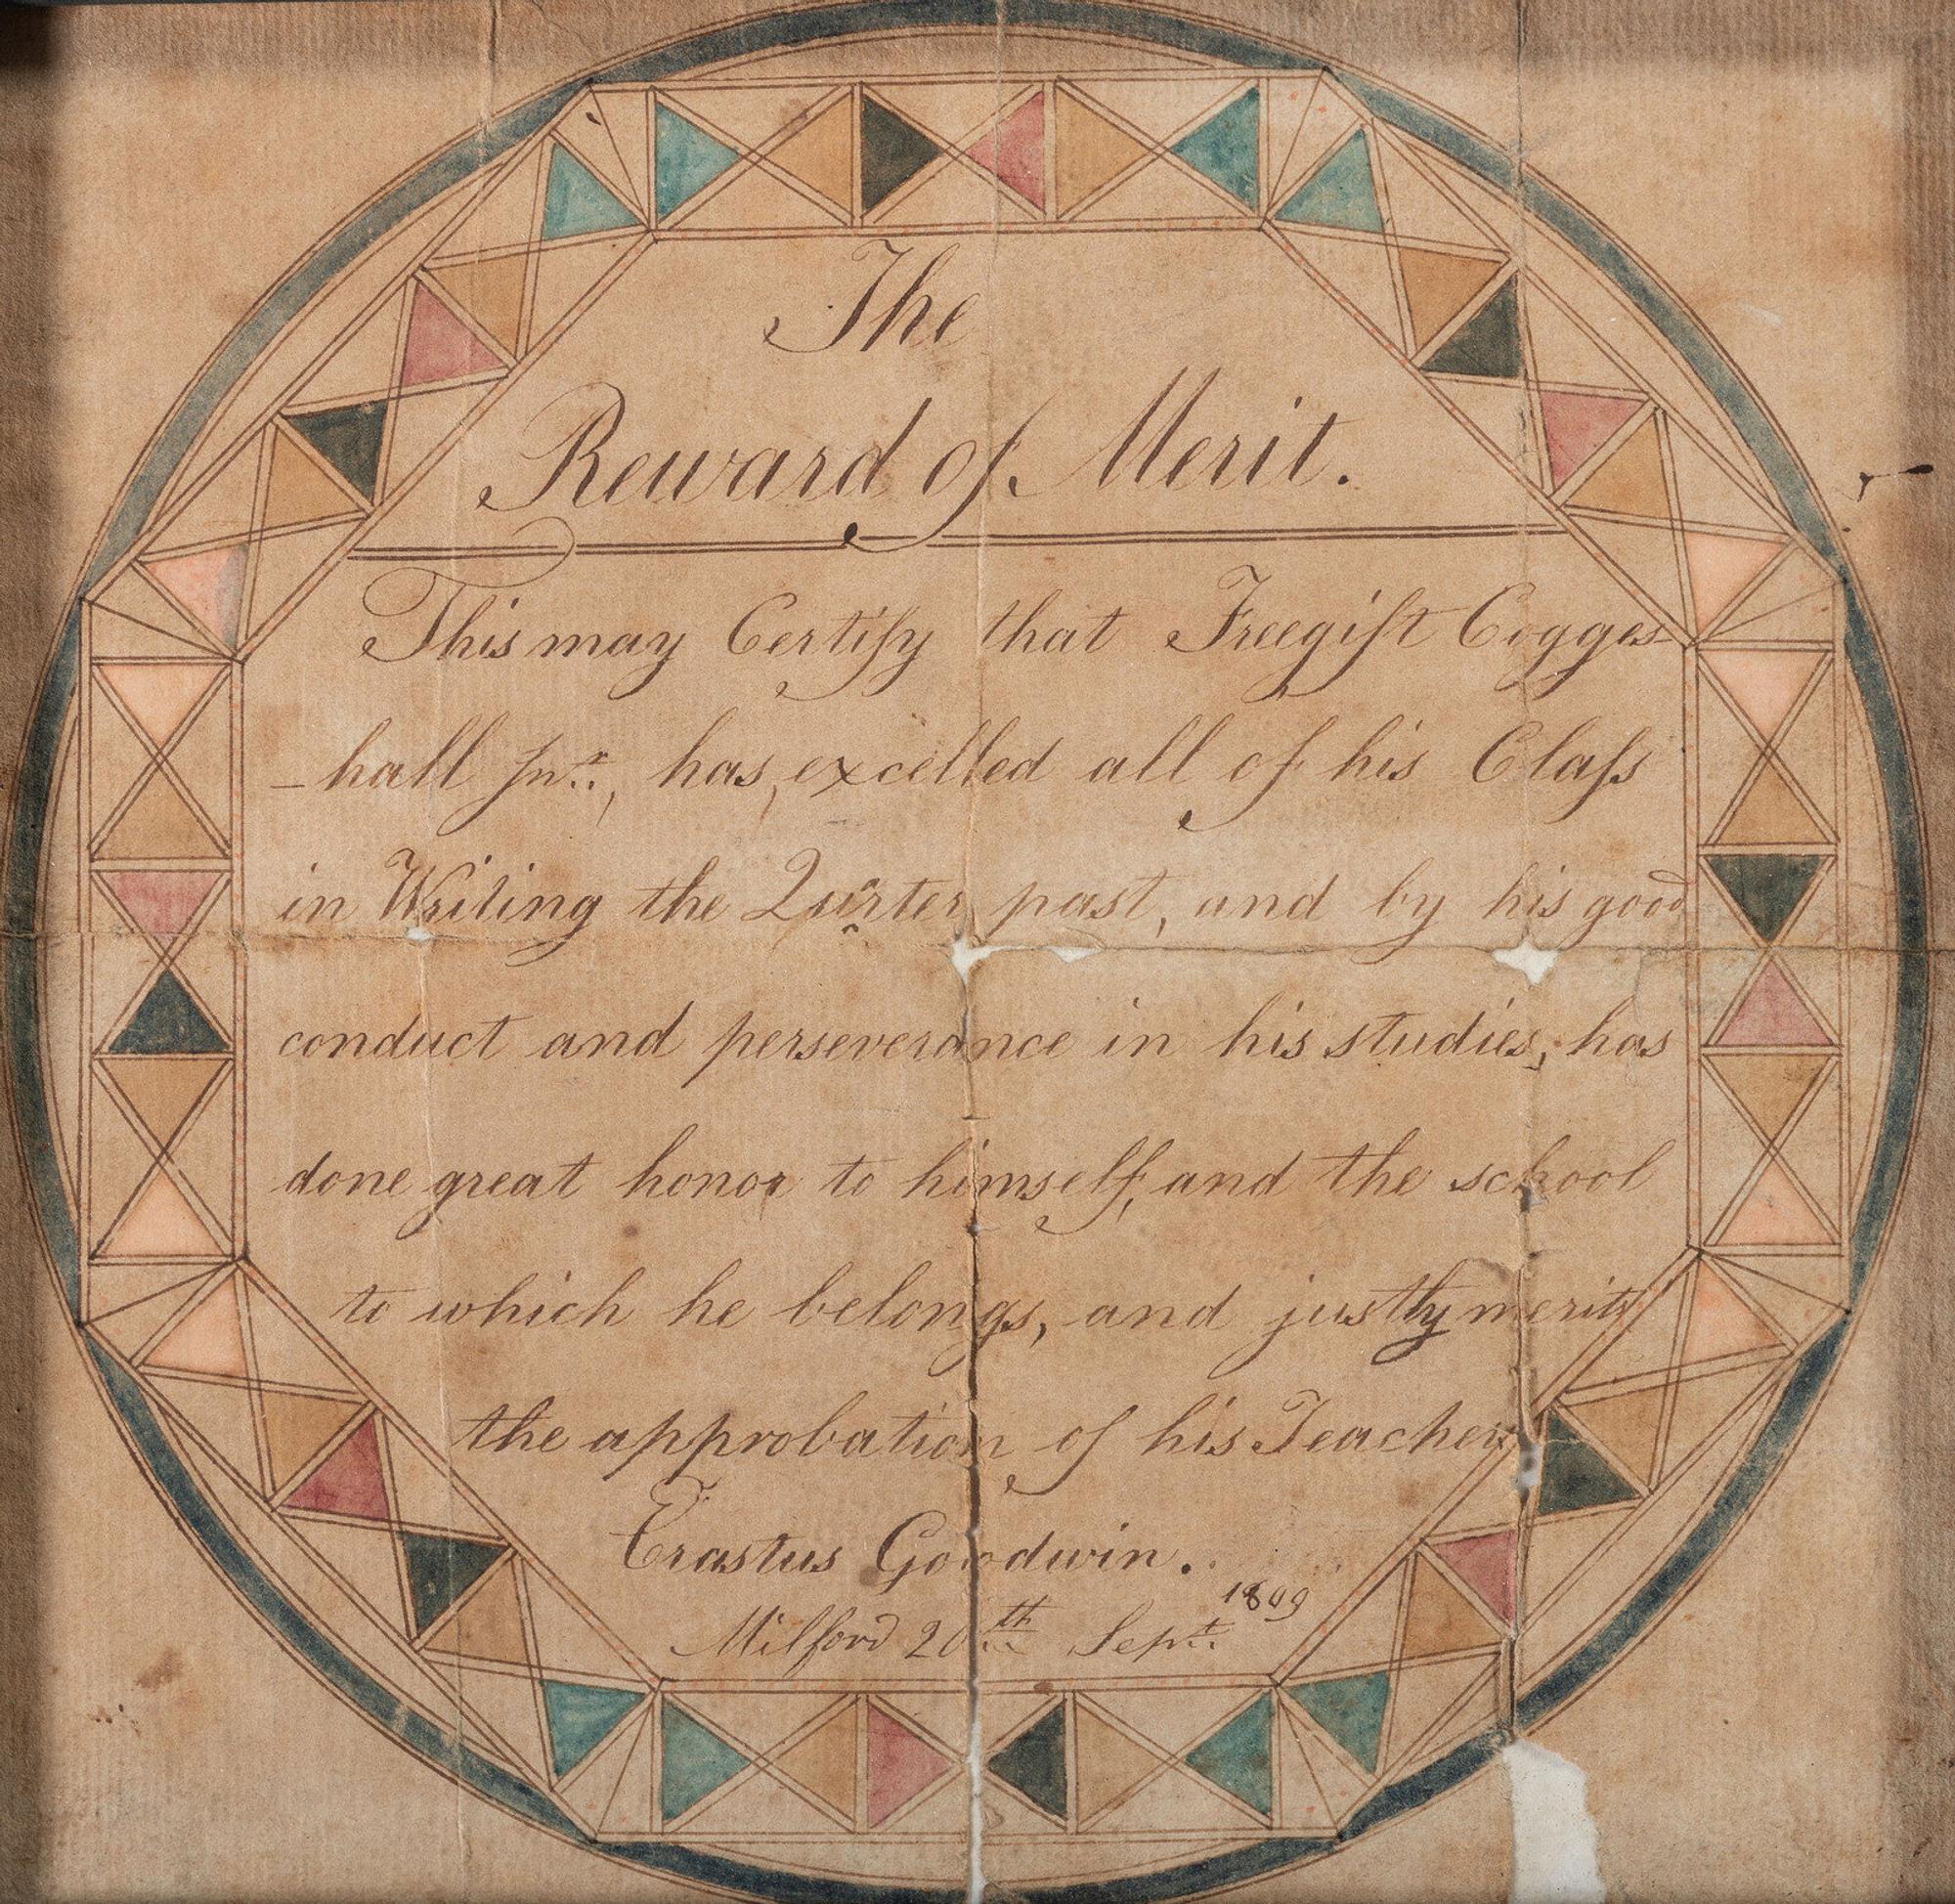 The
Reward of Merit.
This may Certify that Freegift Cogges-
-hall Junr., has, excelled all of his Claſs
in Writing the Quarter past, and by his good
conduct and perseverance in his studies, has
done great honor to himself, and the school
to which he belongs, and justly merits
the approbation of his Teacher
Erastus Goodwin.
Milford 20th Sept. 1809